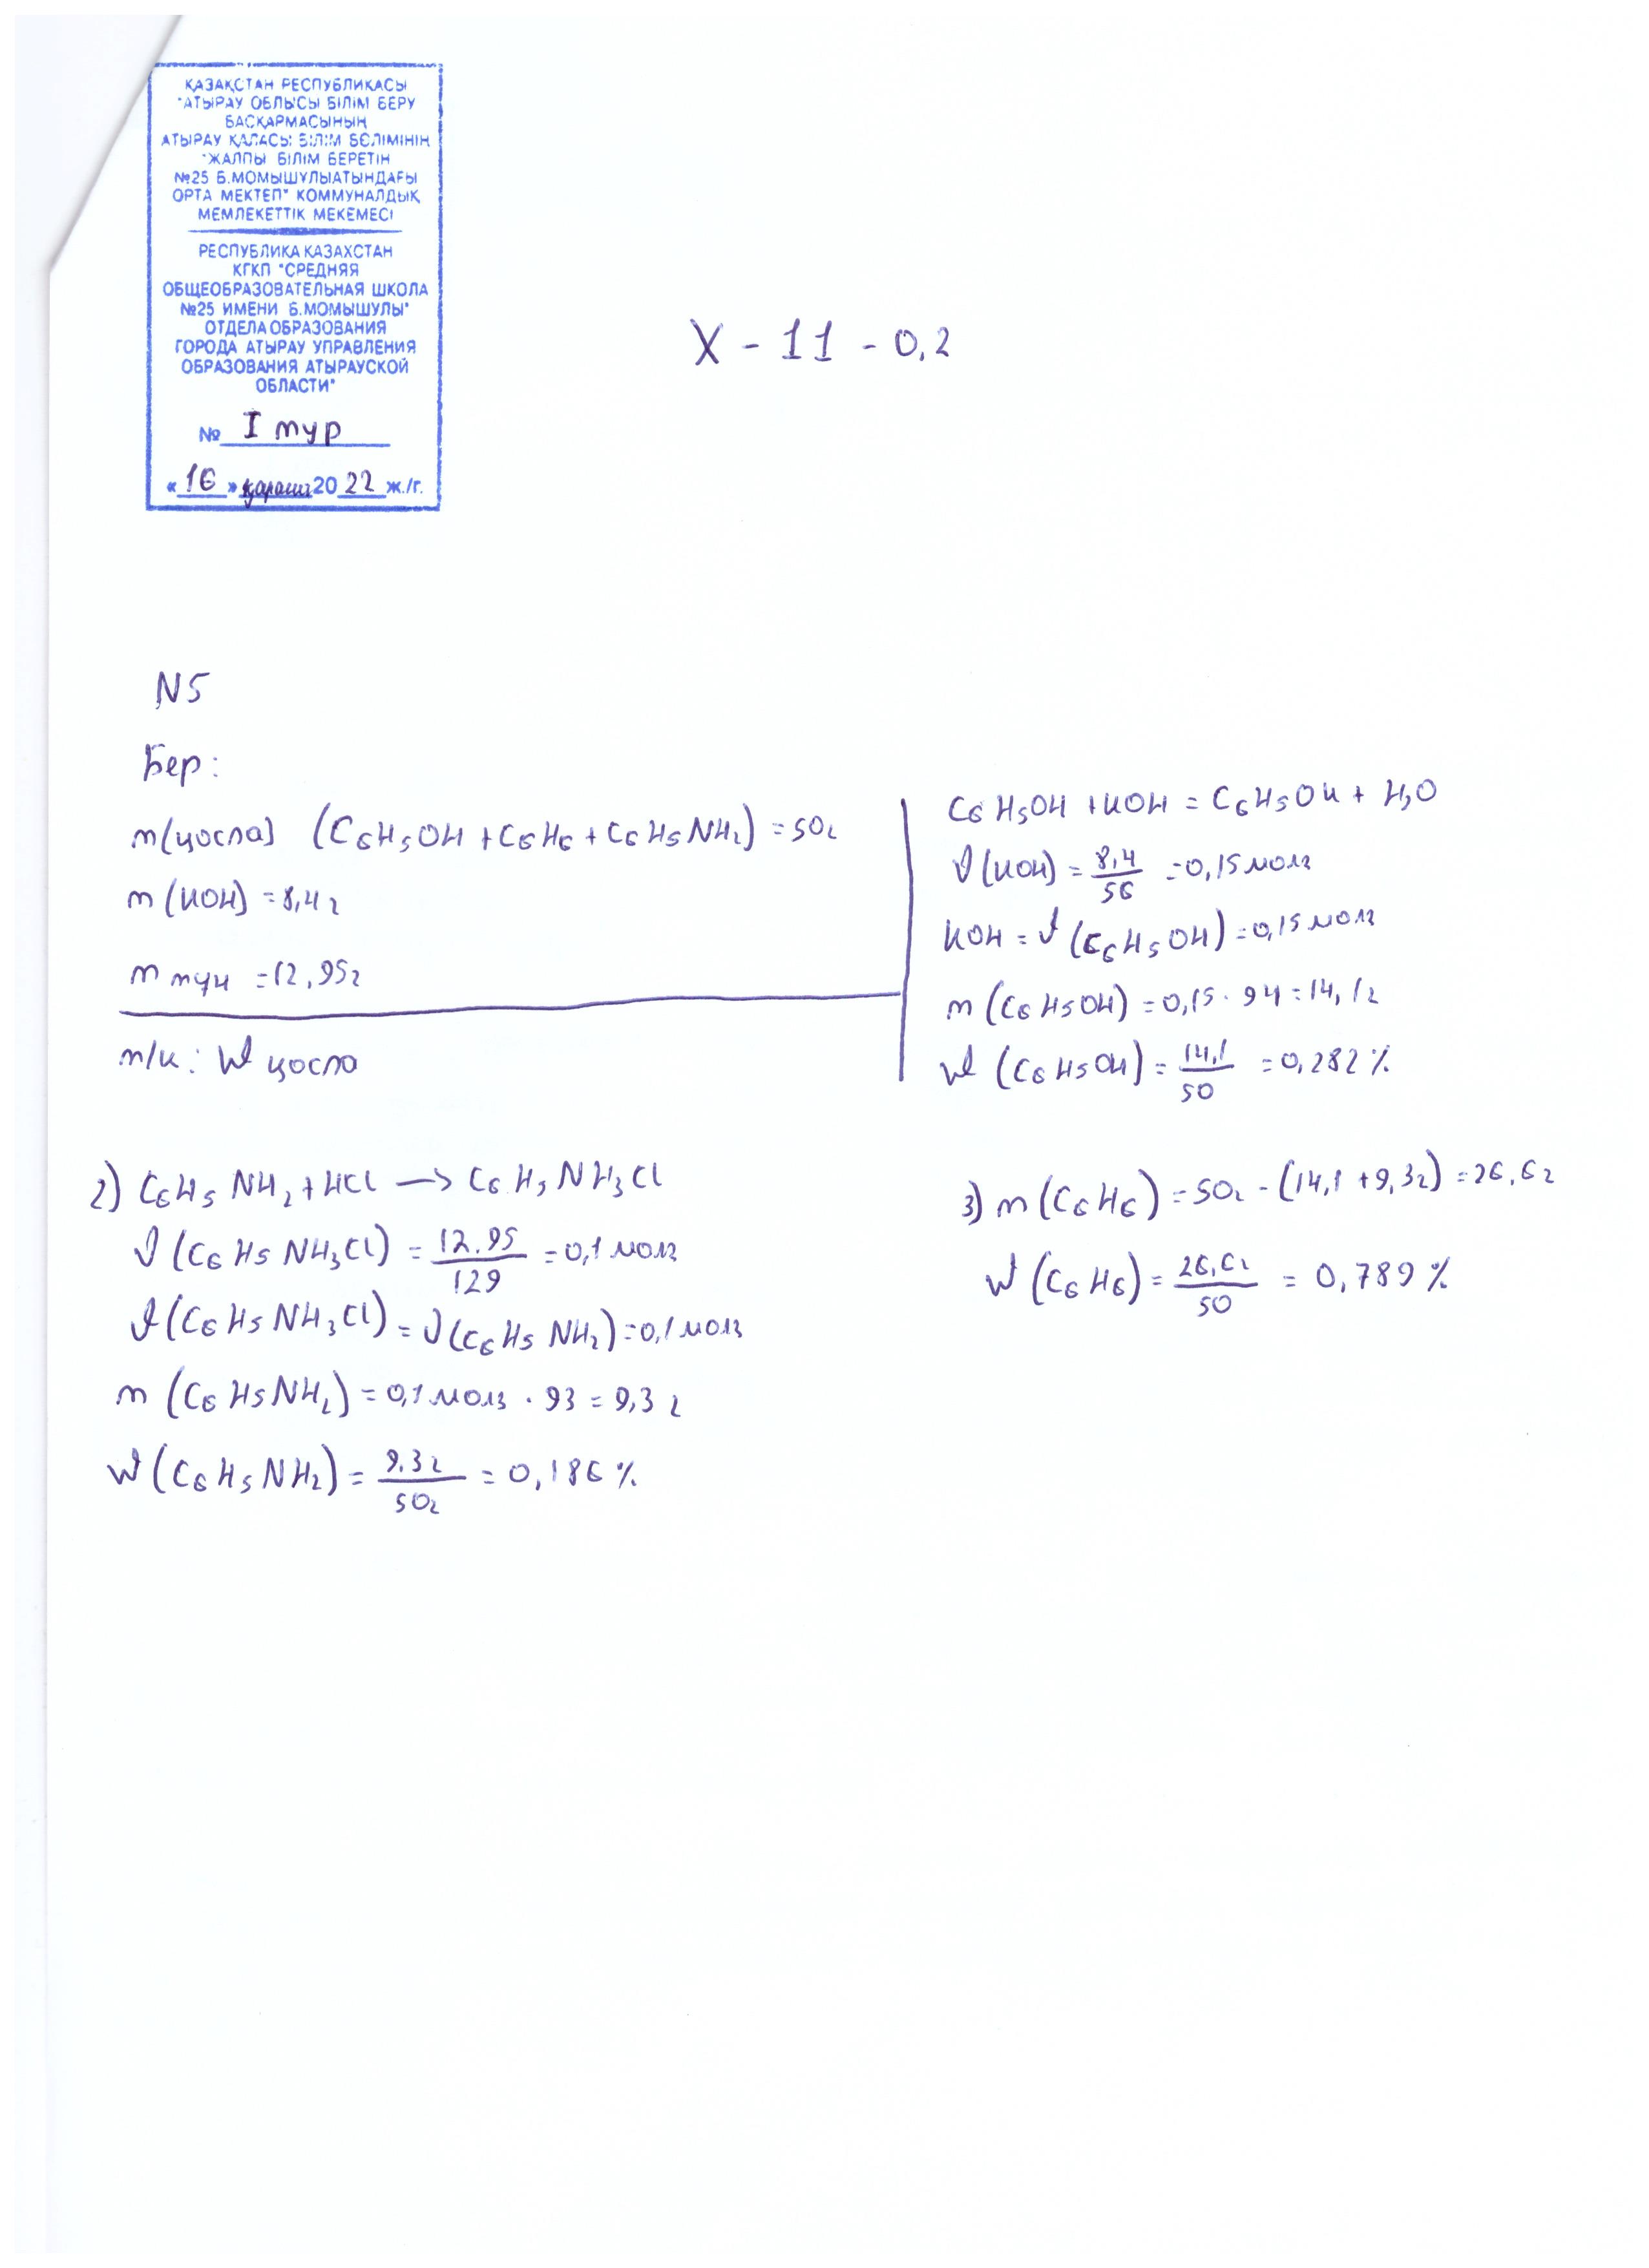 ҚАЗАҚСТАН РЕСПУБЛИКАСЫ
"АТЫРАУ ОБЛЫСЫ БІЛІМ БЕРУ
БАСҚАРМАСЫНЫҢ
АТЫРАУ ҚАЛАСЫ БІЛІМ БӨЛІМІНІҢ
"ЖАЛПЫ БІЛІМ БЕРЕТІН
№25 Б.МОМЫШҰЛЫАТЫНДАҒЫ
ОРТА МЕКТЕП" КОММУНАЛДЫҚ
МЕМЛЕКЕТТІК МЕКЕМЕСІ
РЕСПУБЛИКА КАЗАХСТАН
КГКП "СРЕДНЯЯ
ОБЩЕОБРАЗОВАТЕЛЬНАЯ ШКОЛА
№25 ИМЕНИ Б.МОМЫШУЛЫ"
ОТДЕЛА ОБРАЗОВАНИЯ
ГОРОДА АТЫРАУ УПРАВЛЕНИЯ
ОБРАЗОВАНИЯ АТЫРАУСКОЙ
ОБЛАСТИ"
№ I тур
«16» қараша 2022 ж./г.
X - 11 - 0.2
N5
Бер:
m(қоспа) (C6H5OH + C6H6 + C6H5NH2) = 50г
m(KOH) = 8,4 г
m тұн = 12,95г
т/к: W қоспа
C6H5OH + KOH = C6H5OK + H2O
ϑ(KOH) = 8,4/56 = 0,15 моль
KOH = ϑ(C6H5OH) = 0,15 моль
m(C6H5OH) = 0,15 · 94 = 14,1г
W(C6H5OH) = 14,1/50 = 0,282 %
2) C6H5NH2 + HCl —> C6H5NH3Cl
ϑ(C6H5NH3Cl) = 12.95/129 = 0,1 моль
ϑ(C6H5NH3Cl) = ϑ(C6H5NH2) = 0,1 моль
m(C6H5NH2) = 0,1 моль · 93 = 9,3 г
W(C6H5NH2) = 9.3г/50г = 0,186 %
3) m(C6H6) = 50г - (14,1 + 9,3г) = 26,6г
W(C6H6) = 26,6г/50 = 0,789 %